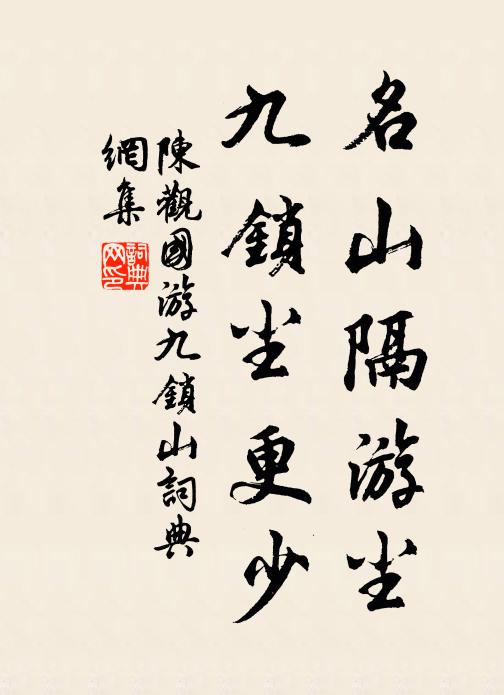 名山隔游尘
九鎖尘更少
陳觀國游九鎖山詞典
網集
詞典网印